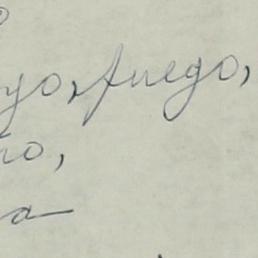 yo, fuego,
no,
a